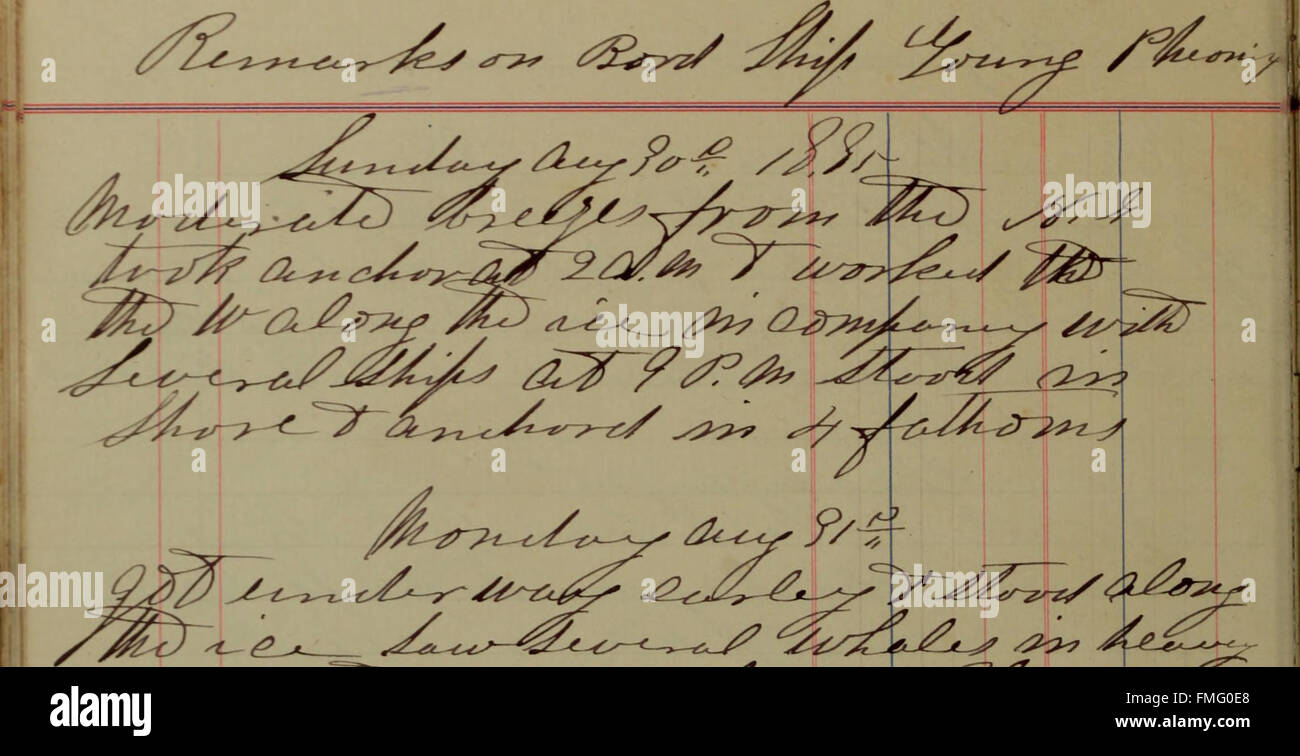 Remarks on Bord Ship Young Pheonix
Sunday Aug 30d 1885
Moderate breezes from the N.E
took anchor at 2 a.m & worked the
the W along the ice in company with
Several Ships at 9 P.m stood in
Shore & anchord in 4 fathoms
Monday Aug 31d
got under way earley & stood along
the ice saw several whales in heavy
alamy
alamy
Image ID: FMG0E8
www.alamy.com